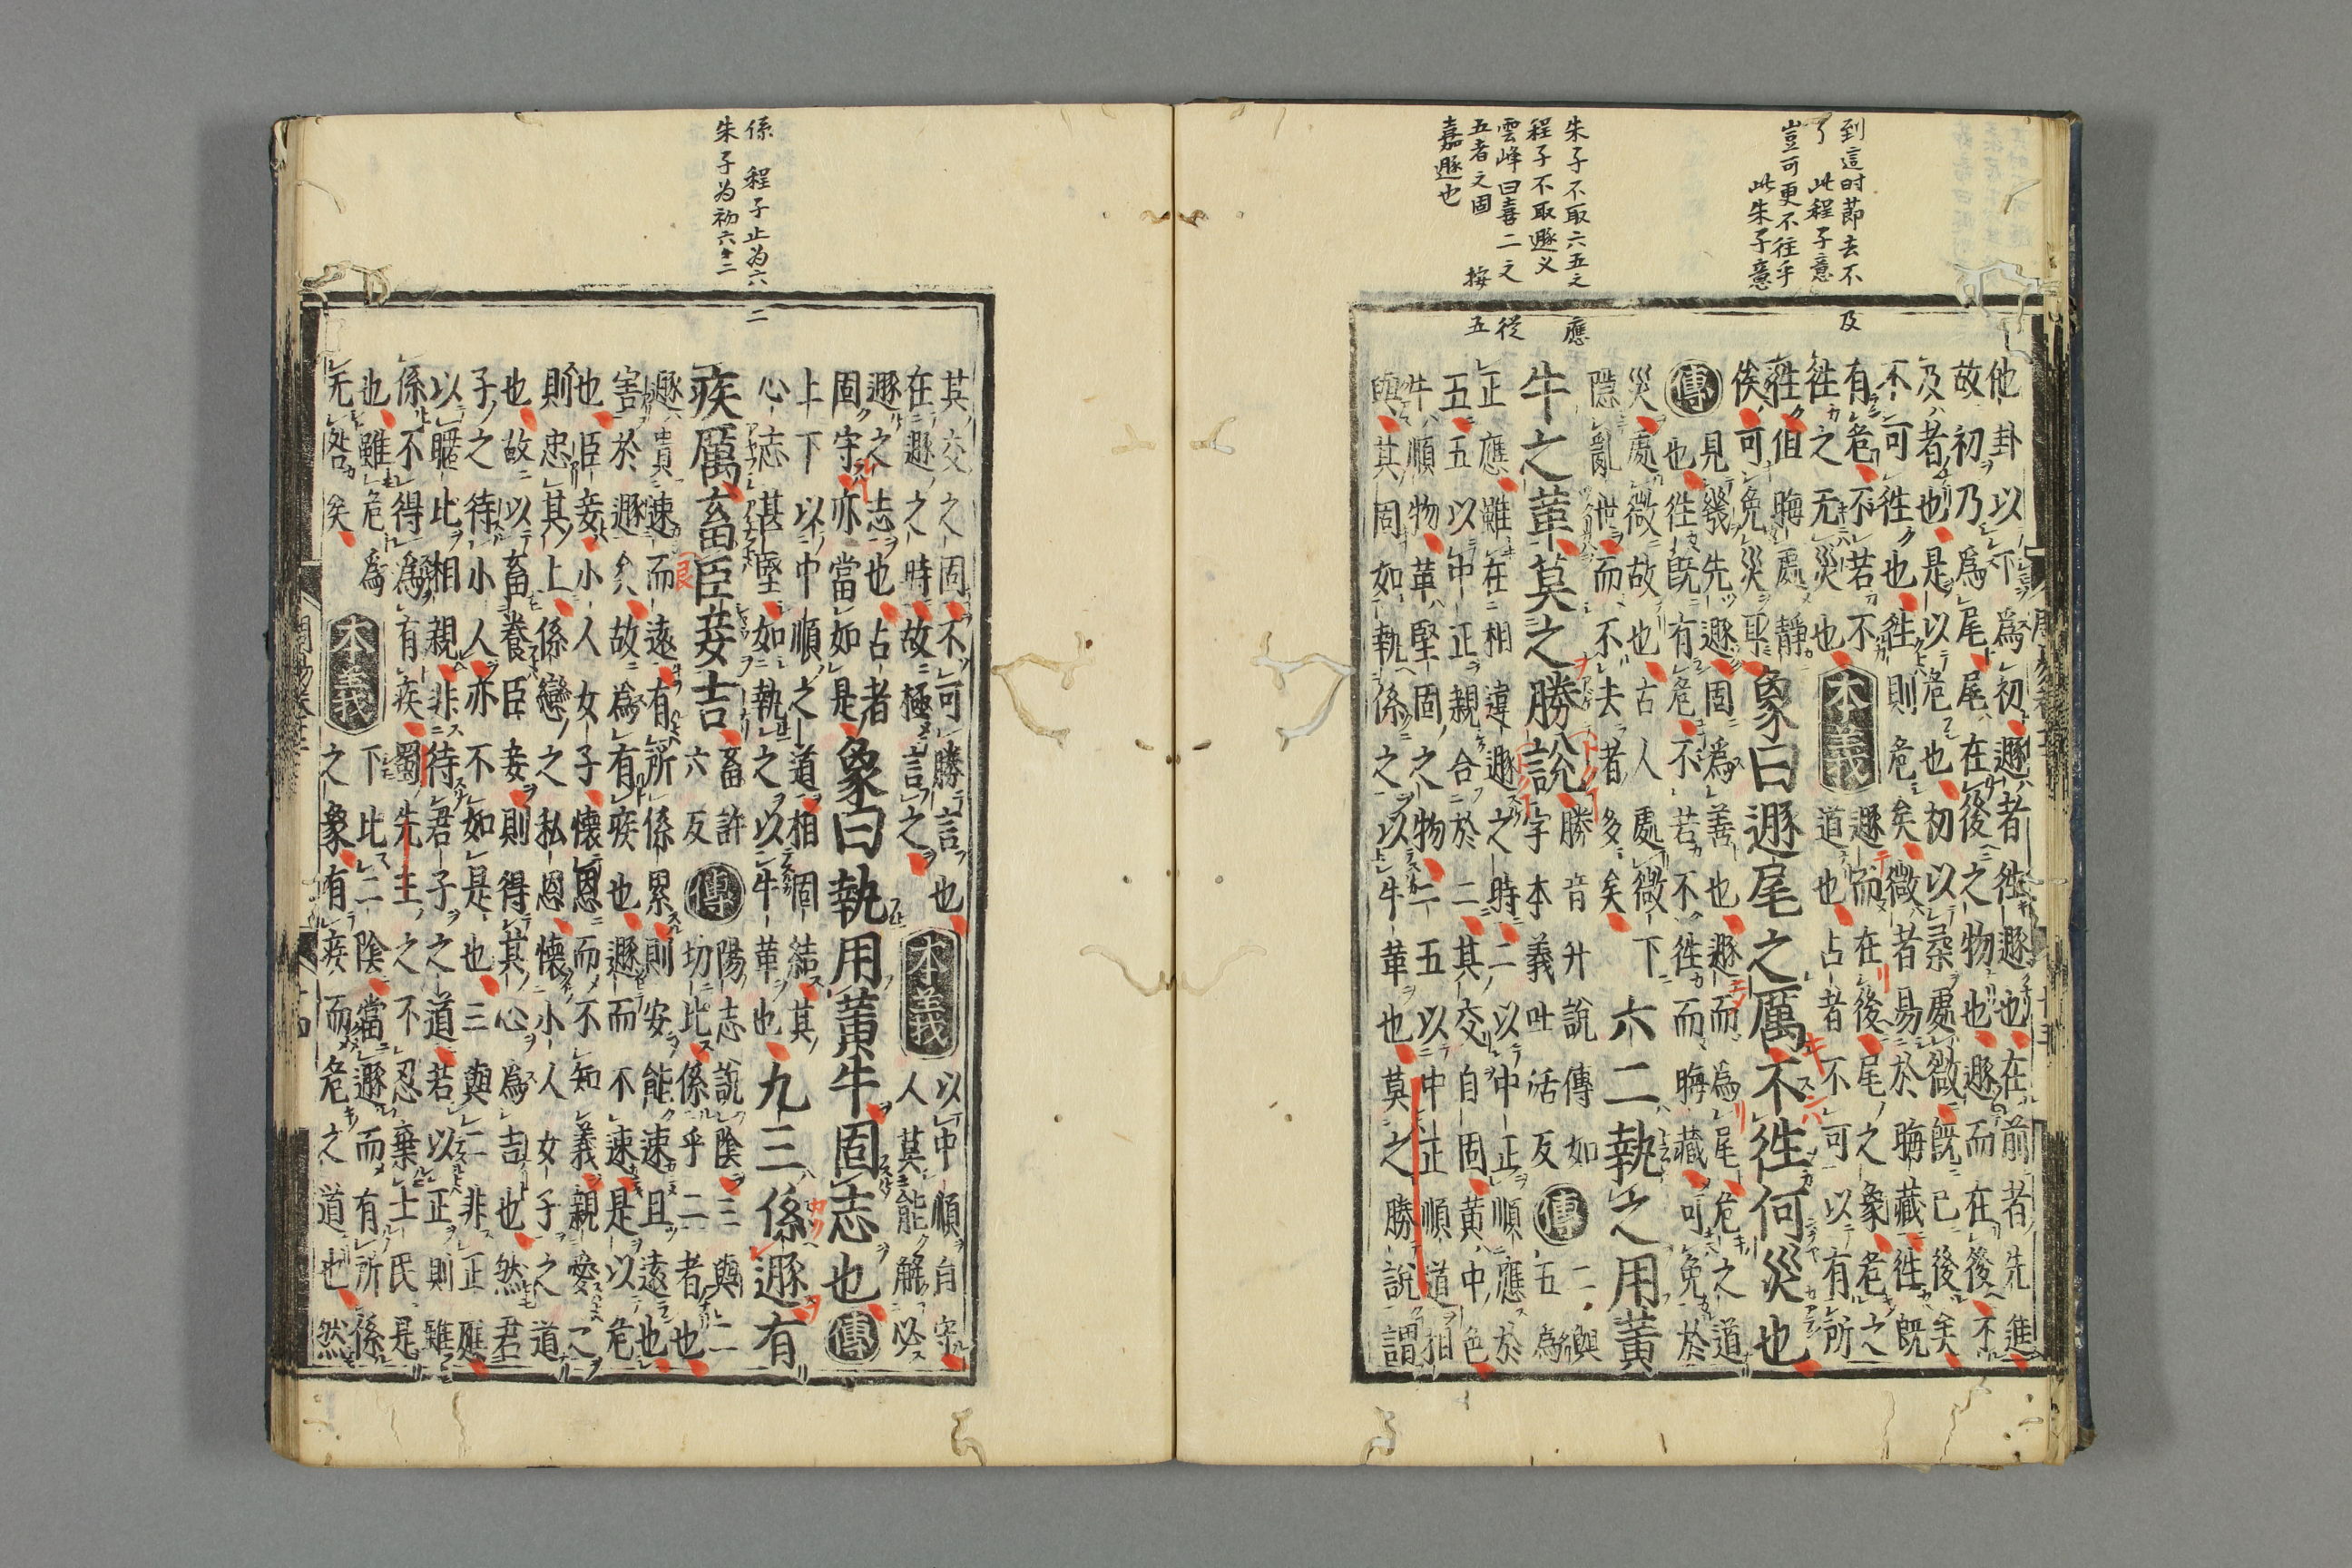 到這时節去不及
了 此程子意
豈可更不往乎
此朱子意
朱子不取六五之應
程子不取遯义
雲峰曰喜二之從
五者之固 按五
嘉遯也
他卦以下爲初遯者徃遯也在前者先進
故初乃爲尾尾在後之物也遯而在後不
及者也是以危也初以柔處微既已後矣
不可徃也徃則危矣微者易於晦藏徃既
有危不若不
徃之无災也
本義
遯而在後尾之象危之
道也占者不可以有所
徃但晦處靜
俟可免災耳
象曰遯尾之厲不徃何災也
傳
見幾先遯固爲善也遯而爲尾危之道
也徃既有危不若不徃而晦藏可免於
災處微故也古人處微下
隱亂世而不去者多矣
六二執之用黃
牛之革莫之勝說
勝音升說傳如
字本義吐活反
傳
二與
五爲
正應雖在相違遯之時二以中正順應於
五五以中正親合於二其交自固黃中色
牛順物革堅固之物二五以中正順道相
與其固如執係之以牛革也莫之勝說謂
係 程子止为六二
朱子为初六六二
其交之固不可勝言也
在遯之時故極言之
本義
以中順自守
人莫能解必
遯之志也占者
固守亦當如是
象曰執用黃牛固志也
傳
上下以中順之道相固結其
心志甚堅如執之以牛革也
九三係遯有
疾厲畜臣妾吉
畜許
六反
傳
陽志說陰三與二
切比係乎二者也
遯貴速而遠有所係累則安能速且遠也
害於遯矣故爲有疾也遯而不速是以危
也臣妾小人女子懷恩而不知義親愛之
則忠其上係戀之私恩懷小人女子之道
也故以畜養臣妾則得其心爲吉也然君
子之待小人亦不如是也三與二非正應
以暱比相親非待君子之道若以正則雖
係不得爲有疾蜀先主之不忍棄士民是
也雖危爲
无咎矣
本義
下比二陰當遯而有所係
之象有疾而危之道也然